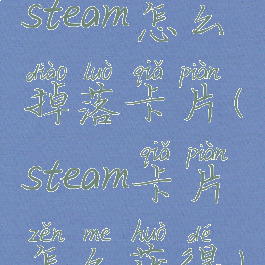 steam怎么
diào luò qiǎ piàn
掉落卡片(
qiǎ piàn
steam卡片
zěn me huò dé
怎么获得)